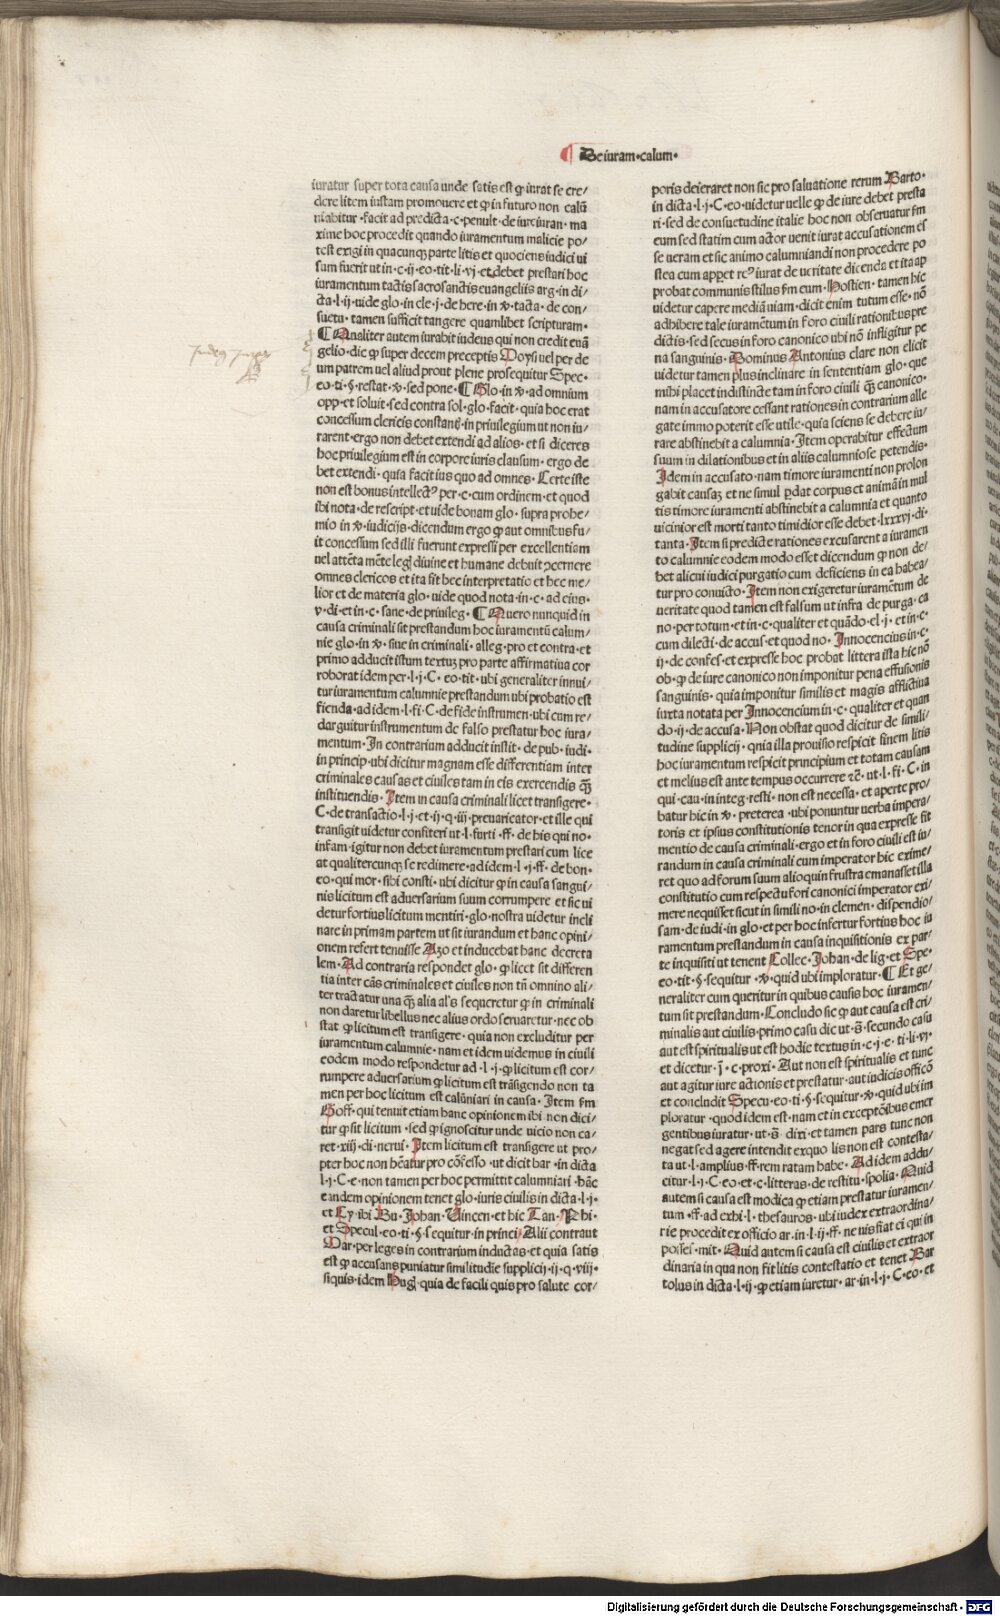 ¶ De iuram·calum·
iuratur super tota causa unde satis est ꝙ iurat se cre/
dere litem iustam promouere et ꝙ in futuro non calū
niabitur·facit ad predicta·c·penult·de iureiuran·ma
xime hoc procedit quando iuramentum malicie po/
test exigi in quacunqꝫ parte litis et quociens iudici ui
sum fuerit ut in·c·ij·eo·tit·li·vj·et debet prestari hoc
iuramentum tactis sacrosanctis euangeliis arg·in di/
cta·l·ij·uide glo·in cle·j·de here·in ꝟ·tacta·de con/
suetu·tamen sufficit tangere quamlibet scripturam·
¶ Qualiter autem iurabit iudeus qui non credit euā
gelio·dic ꝙ super decem preceptis Moysi uel per de
um patrem uel aliud prout plene prosequitur Spec·
eo·ti·§·restat·ꝟ·sed pone·¶ Glo·in ꝟ·ad omnium
opp·et soluit·sed contra sol·glo·facit·quia hoc erat
concessum clericis constantī in priuilegium ut non iu/
rarent·ergo non debet extendi ad alios·et si diceres
hoc priuilegium est in corpore iuris clausum·ergo de
bet extendi·quia facit ius quo ad omnes·Certe iste
non est bonus intellectꝰ per·c·cum ordinem·et quod
ibi nota·de rescript·et uide bonam glo·supra prohe/
mio in ꝟ·iudicijs·dicendum ergo ꝙ aut omnibus fu/
it concessum sed illi fuerunt expressi per excellentiam
uel attēta mēte legꝭ diuine et humane debuit ꝓcernere
omnes clericos et ita sit hec interpretatio et hec me/
lior et de materia glo·uide quod nota·in·c·ad eius·
v·di·et in·c·sane·de priuileg·¶ Quero nunquid in
causa criminali sit prestandum hoc iuramentū calum/
nie glo·in ꝟ·siue in criminali·alleg·pro et contra·et
primo adducit istum textuꝫ pro parte affirmatiua cor
roborat idem per·l·j·C·eo·tit·ubi generaliter innui/
tur iuramentum calumnie prestandum ubi probatio est
fienda·ad idem·l·fi·C·de fide instrumen·ubi cum re/
darguitur instrumentum de falso prestatur hoc iura/
mentum·In contrarium adducit instit·de pub·iudi·
in princip·ubi dicitur magnam esse differentiam inter
criminales causas et ciuiles tam in eis exercendis qꝫ̄
instituendis·Item in causa criminali licet transigere·
C·de transactio·l·j·et·ij·q·iij·preuaricator·et ille qui
transigit uidetur confiteri ut·l·furti·ff·de his qui no·
infam·igitur non debet iuramentum prestari cum lice
at qualitercunqꝫ se redimere·ad idem·l·j·ff·de bon·
eo·qui mor·sibi consti·ubi dicitur ꝙ in causa sangui/
nis licitum est aduersarium suum corrumpere et sic ui
detur fortius licitum mentiri·glo·nostra uidetur incli
nare in primam partem ut sit iurandum et hanc opini/
onem refert tenuisse Azo et inducebat hanc decreta
lem·Ad contraria respondet glo·ꝙ licet sit differen
tia inter cās criminales et ciuiles non tn̄ omnino ali/
ter tractatur una qꝫ̄ alia al's sequeretur ꝙ in criminali
non daretur libellus nec alius ordo seruaretur·nec ob
stat ꝙ licitum est transigere·quia non excluditur per
iuramentum calumnie·nam et idem uidemus in ciuili
eodem modo respondetur ad·l·j·ꝙ licitum est cor/
rumpere aduersarium ꝙ licitum est trāsigendo non ta
men per hoc licitum est calūniari in causa·Item fm
Goff·qui tenuit etiam hanc opinionem ibi non dici/
tur ꝙ sit licitum·sed ꝙ ignoscitur unde uicio non ca/
ret·xiij·di·nerui·Item licitum est transigere ut pro/
pter hoc non hēatur pro cōfesso·ut dicit bar·in dicta
l·j·C·e·non tamen per hoc permittit calumniari·hāc
eandem opinionem tenet glo·iuris ciuilis in dicta·l·j·
et Cy·ibi Bu·Johan·Uincen·et hic Tan·Phi·
et Specul·eo·ti·§·sequitur·in princi·Alii contra ut
Mar·per leges in contrarium inductas·et quia satis
est ꝙ accusans puniatur similitudie supplicij·ij·q·viij·
siquis·idem Hugꝭ quia de facili quis pro salute cor/
poris deieraret non sic pro saluatione rerum Barto·
in dicta·l·j·C·eo·uidetur uelle ꝙ de iure debet presta
ri·sed de consuetudine italie hoc non obseruatur fm
eum sed statim cum actor uenit iurat accusationem eē
se ueram et sic animo calumniandi non procedere po
stea cum apparet reꝰ iurat de ueritate dicenda et ita ap
probat communis stilus fm eum·Hostien·tamen hic
uidetur capere mediā uiam·dicit enim tutum esse·nō
adhibere tale iuramētum in foro ciuili rationibus pre
dictis·sed secus in foro canonico ubi nō infligitur pe
na sanguinis·Dominus Antonius clare non elicit
uidetur tamen plus inclinare in sententiam glo·que
mihi placet indistincte tam in foro ciuili qꝫ̄ canonico·
nam in accusatore cessant rationes in contrarium alle
gate immo poterit esse utile·quia sciens se debere iu/
rare abstinebit a calumnia·Item operabitur effectum
suum in dilationibus et in aliis calumniose petendis·
Idem in accusato·nam timore iuramenti non prolon
gabit causaꝫ et ne simul ꝑdat corpus et animā in mul
tis timore iuramenti abstinebit a calumnia et quanto
uicinior est morti tanto timidior esse debet·lxxxvj·di·
tanta·Item si predicte rationes excusarent a iuramen
to calumnie eodem modo esset dicendum ꝙ non de/
bet alicui iudici purgatio cum deficiens in ea habea/
tur pro conuicto·Item non exigeretur iuramētum de
ueritate quod tamen est falsum ut infra de purga·ca
no·per totum·et in·c·qualiter et quādo·el·j·et in·c·
cum dilecti·de accus·et quod no·Innocencius in·c·
ij·de confes·et expresse hoc probat littera ista hic nō
ob·ꝙ de iure canonico non imponitur pena effusionis
sanguinis·quia imponitur similis et magis afflictiua
iuxta notata per Innocencium in·c·qualiter et quan
do·ij·de accusa·Non obstat quod dicitur de simili/
tudine supplicij·quia illa prouisio respicit finem litis
hoc iuramentum respicit principium et totam causam
et melius est ante tempus occurrere ⁊c̄·ut·l·fi·C·in
qui·cau·in integ·resti·non est necessa·et aperte pro/
batur hic in ꝟ·preterea·ubi ponuntur uerba impera/
toris et ipsius constitutionis tenor in qua expresse fit
mentio de causa criminali·ergo et in foro ciuili est iu/
randum in causa criminali cum imperator hic exime/
ret quo ad forum suum alioquin frustra emanasset illa
constitutio cum respectu fori canonici imperator exi/
mere nequisset sicut in simili no·in clemen·dispendio/
sam·de iudi·in glo·et per hoc infertur fortius hoc iu
ramentum prestandum in causa inquisitionis ex par/
te inquisiti ut tenent Collec·Johan·de lig·et Spe·
eo·tit·§·sequitur·ꝟ·quid ubi imploratur·¶ Et ge/
neraliter cum queritur in quibus causis hoc iuramen/
tum sit prestandum·Concludo sic ꝙ aut causa est cri/
minalis aut ciuilis·primo casu dic ut·s̄·secundo casu
aut est spiritualis ut est hodie textus in·c·j·e·ti·li·vj·
et dicetur·j̄·c·proxi·Aut non est spiritualis et tunc
aut agitur iure actionis et prestatur·aut iudicis officō
et concludit Specu·eo·ti·§·sequitur·ꝟ·quid ubi im
ploratur·quod idem est·nam et in exceptōibus emer
gentibus iuratur·ut·s̄·dixi·et tamen pars tunc non
negat sed agere intendit ex quo lis non est contesta/
ta ut·l·amplius·ff·rem ratam habe·Ad idem addu/
citur·l·j·C·eo·et·c·litteras·de restitu·spolia·Quid
autem si causa est modica ꝙ etiam prestatur iuramen/
tum·ff·ad exhi·l·thesauros·ubi iudex extraordina/
rie procedit ex officio ar·in·l·ij·ff·ne uis fiat ei qui in
possess·mit·Quid autem si causa est ciuilis et extraor
dinaria in qua non fit litis contestatio et tenet Bar
tolus in dicta·l·ij·ꝙ etiam iuretur·ar·in·l·j·C·eo·et
Digitalisierung gefördert durch die Deutsche Forschungsgemeinschaft - DFG